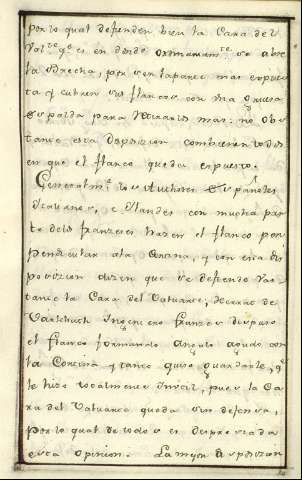 por lo qual defienden bien la Cara del
Val.te q.e es en donde ordinariam.te se abre
la Brecha, pero es en la parte mas expuesta
y cubren sus flancos con una gruesa
Espalda para
tante esta disposicion combienen todos
en que el flanco queda expuesto.
Generalm.te los Autores Españoles
Italianos, e Olandes con mucha par
te de los franzeses hazen el flanco per
pendicular a la Cortina, y con esta dis
posicion dizen que se defiende
la Cara del Valuarte,
Ingeniero frances dispuso
el flanco formando angulo agudo con
la Cortina y tanto quiso guardarle, q.e
le hizo totalmente inutil, pues la Ca
ra del Valuarte queda sin defensa,
por lo qual de todos es despreciada
esta opinion. La mejor disposicion